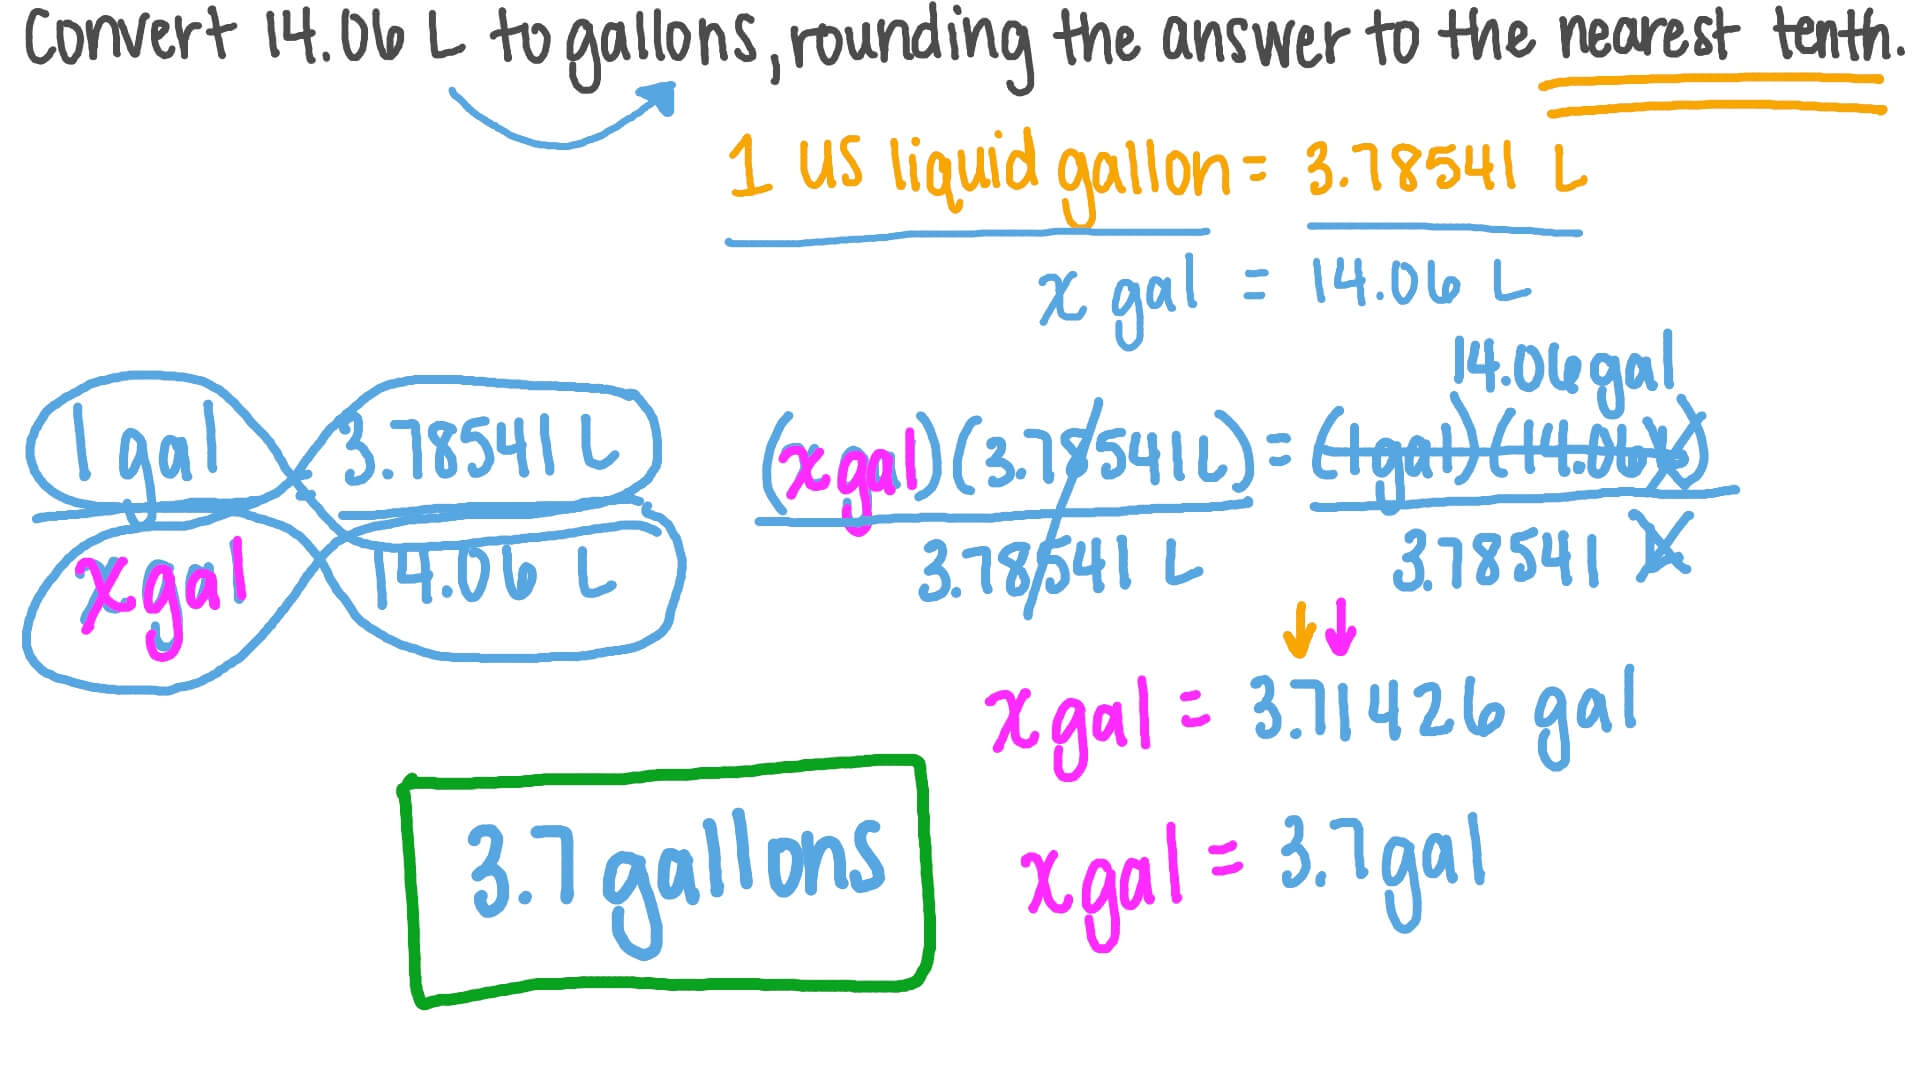 Convert 14.06 L to gallons, rounding the answer to the nearest tenth.
1 US liquid gallon = 3.78541 L
x gal = 14.06 L
14.06 gal
1 gal 3.78541 L
x gal 14.06 L
(x gal)(3.78541 L) = (1 gal)(14.06 L)
3.78541 L 3.78541 L
x gal = 3.71426 gal
x gal = 3.7 gal
3.7 gallons